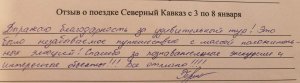 Отзыв о поездке Северный Кавказ с 3 по 8 января
Выражаю благодарность за удивительный тур! Это
было незабываемое путешествие с массой положитель-
ных эмоций! Спасибо за познавательные экскурсии и
интересные Все отлично!!!